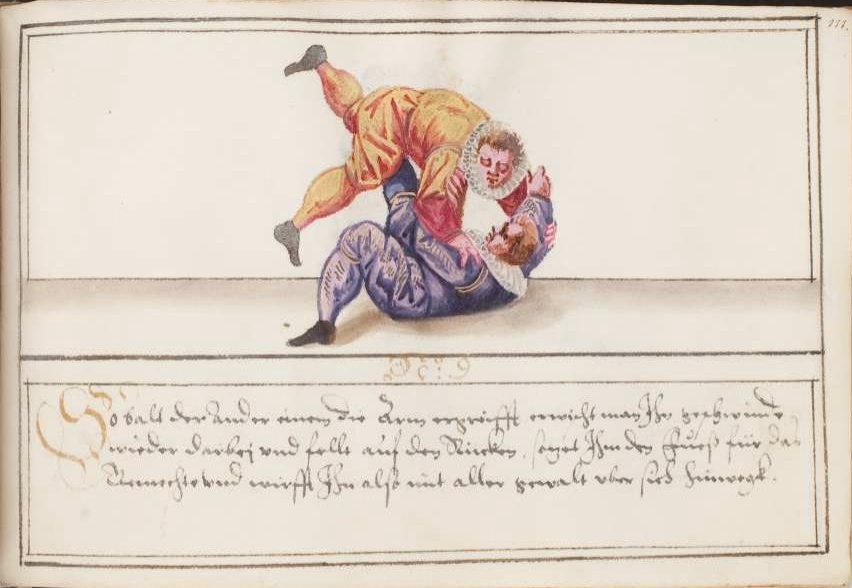 111.
So balt der Ander einem die Arm ergreifft erwischt man Ihn geschwinde
wieder darbej vnd fellt auf den Rücken, setzet Ihm den Fueß für das
Gemechte vnd wirfft Ihn also mit aller gewalt vber sich hinwegk.